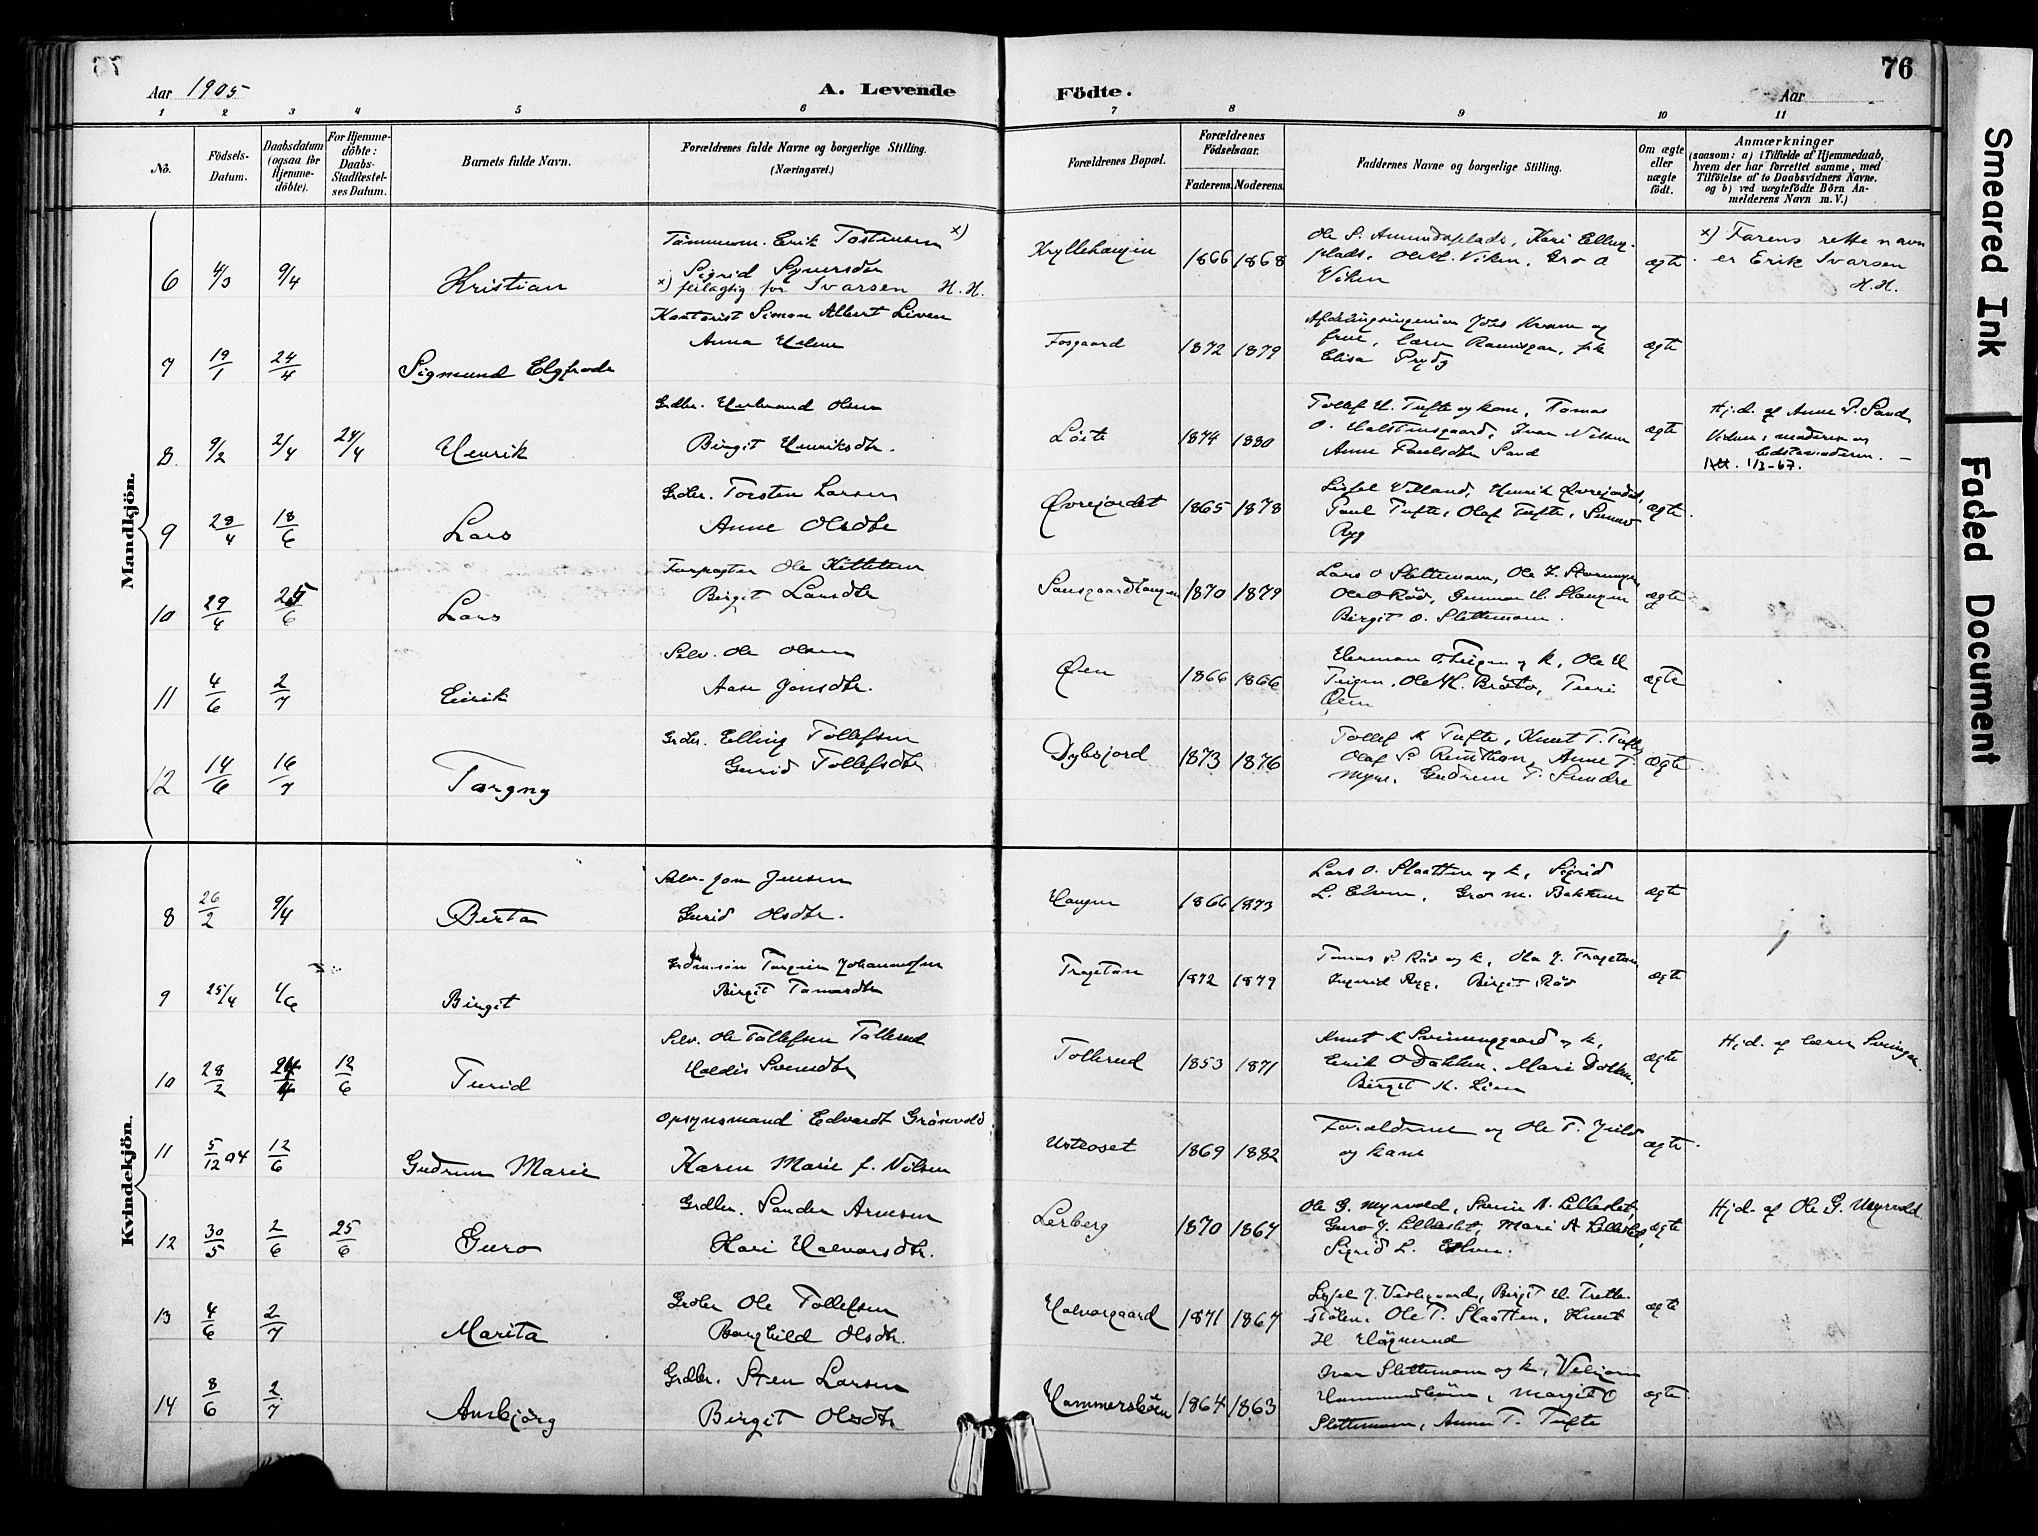 76
Aar 1905
A. Levende
Födte.
Aar
1 2 3 4 5 6 7 8 9 10 11
No.
Födsels-
Datum.
Daabsdatum
(ogsaa for
Hjemme-
döbte).
For Hjemme-
döbte:
Daabs-
Stadfæstel-
ses Datum.
Barnets fulde Navn.
Forældrenes fulde Navne og borgerlige Stilling.
(Næringsvei.)
Forældrenes Bopæl.
Forældrenes
Födselsaar.
Faderens. Moderens.
Faddernes Navne og borgerlige Stilling.
Om ægte
eller
uægte
födt.
Anmærkninger
(saasom: a) i Tilfælde af Hjemmedaab,
hvem der har forrettet samme, med
Tilföielse af to Daabsvidners Navne.
og b) ved uægtefödte Börn An-
melderens Navn m. V.)
Mandkjön.
6 4/3 9/4 Kristian
Erik Tostensen x)
Sigrid Syversdtr
x) feilagtig for Ivarsen H. H.
Kryllehaugen 1866 1868
Ole S. Amundsplads, Kari Elling-
plads, Ole Viken, Gro O
Viken
ægte
x) Farens rette navn
er Erik Ivarsen
H. H.
7 19/1 24/4 Sigmund Elgfrode
Kontorist Simon Albert Liven
Anna
Fosgaard 1872 1879
frue,
Elisa
ægte
8 9/2 2/4 24/4 Henrik
Grdbr. Herbrand Olsen
Birgit Henriksdtr.
Löite 1874 1880
Tollef H. Tufte og kone, Tomas
O. Halstensgaard, Ivar Nilsen
Anne Paulsdtr Sand
ægte
Hj.d. af Anne P. Sand
Vidner: moderen og
9 28/4 18/6 Lars
Grdbr. Torsten Larsen
Anne Olsdtr
Øvrejordet 1865 1878
Henrik Øvrejordet,
Paul Tufte, Olaf Tufte,
Ryg
ægte.
10 29/4 25/6 Lars
Forpagter Ole Kittelsen
Birgit Larsdtr
1870 1879
Lars O Slettemoen, Ole
Ole O Röd, Gunnar H. Haugen
Birgit O. Slettemoen.
ægte
11 4/6 2/7 Eirik
Selv. Ole Olsen
Aase Jonsdtr.
Øen 1866 1866
Herman Teigen og k, Ole H
Teigen, Ole Bråto, Turi
Øen
ægte
12 14/6 16/7 Torgny
Grdbr. Elling Tollefsen
Gunid Tollefsdtr
Dybsjord 1873 1876
Tollef K Tufte, Knut T. Tufte,
Olaf S. Anne T.
Myre, Gudrun T. Sundre
ægte.
Kvindekjön.
8 26/2 9/4 Berta
Selv. Jon Jensen
Gunid Olsdtr.
Haugen 1866 1873
Lars O. Slaatten og k, Sigrid
L. Elven, Gro M. Bakken
ægte
9 25/4 1/6 Birgit
Torgrim Johannessen
Birgit Tomasdtr
Tragetøn 1872 1879
Tomas P. Röd og k, Ola J. Tragetøn
Ingerid Ryg, Birgit Röd
ægte
10 28/2 24/4 12/6 Turid
Selv. Ole Tollefsen Tollerud
Haldis Svendsdtr
Tollerud 1853 1871
Knut K Svinunggaard og k,
Eirik O Dokken, Mari Dokken,
Birgit K. Lien
ægte
Hj.d. af lærer
11 5/12 04 12/6 Gudrun Marie
Opsynsmand Edvardt Grönvold
Karen Marie f. Nilsen
Ustaoset 1869 1882
Forældrene og Ole T. Jeilo
og kone
ægte.
12 30/5 2/6 25/6 Guro
Grdbr. Sander Arnesen
Kari Halvorsdtr.
Lerberg 1870 1867
Ole G. Myrvold, A. Lilleslet,
Guro J. Lilleslet, Mari A Lilleslet,
Sigrid L. Elven.
ægte
Hj.d. af Ole G. Myrvold.
13 4/6 2/7 Marita
Grdbr Ole Tollefsen
Borghild Olsdtr.
Halvorgaard 1871 1867
Birgit H. Trette-
stölen, Ole T. Slaatten, Knut
H
ægte
14 8/6 2/7 Ansbjörg
Grdbr. Sten Larsen
Birgit Olsdtr
Hammersböen 1864 1863
Ivar Slettemoen og k,
Hammersböen, Margit O
Slettemoen, Anne T. Tufte
ægte
Smeared Ink
Faded Document